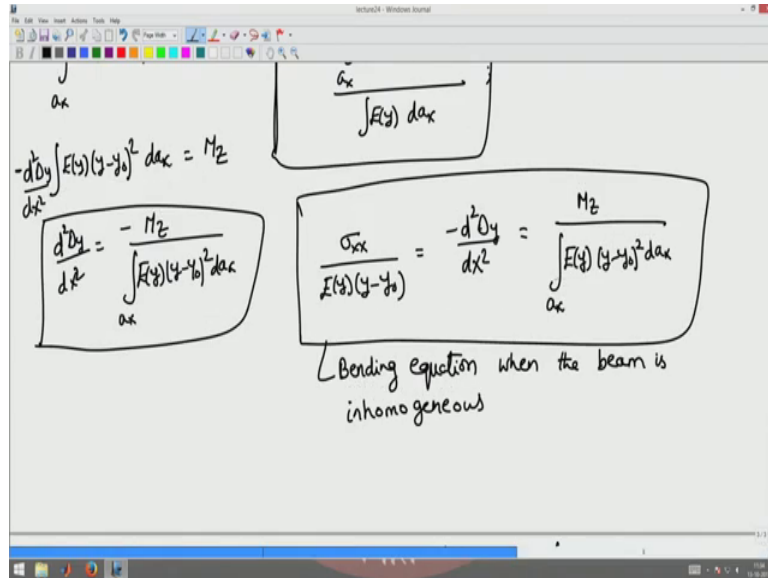 lecture24 - Windows Journal
File Edit View Insert Actions Tools Help
Page Width
∫
aₓ
aₓ
∫E(y) daₓ
-d²Δy/dx² ∫E(y)(y-y₀)² daₓ = M_z
d²Δy/dx² = -M_z / ∫_{aₓ} E(y)(y-y₀)² daₓ
σₓₓ / E(y)(y-y₀) = -d²Δy/dx² = M_z / ∫_{aₓ} E(y)(y-y₀)² daₓ
Bending equation when the beam is
inhomogeneous